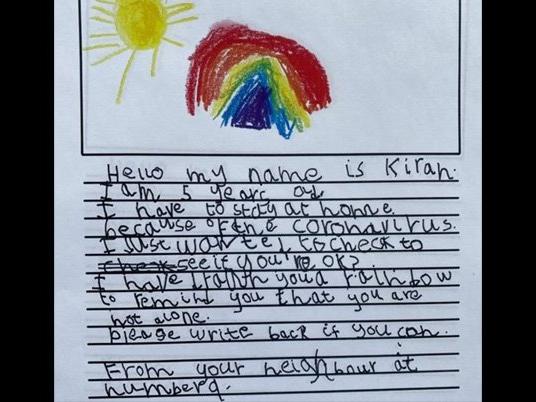 Hello my name is Kirah.
I am 5 years old
I have to stay at home
because of the coronavirus.
I just wanted to check to
see if you're ok?
I have drawn you a rainbow
to remind you that you are
not alone.
please write back if you can.
From your neighbour at
number 9.